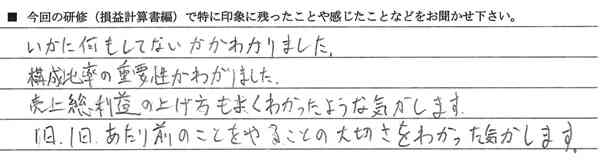 ■ 今回の研修（損益計算書編）で特に印象に残ったことや感じたことなどをお聞かせ下さい。
いかに何もしてないかがわかりました。
構成比率の重要性がわかりました。
売上総利益の上げ方もよくわかったような気がします。
1日、1日、あたり前のことをやることの大切さをわかった気がします。